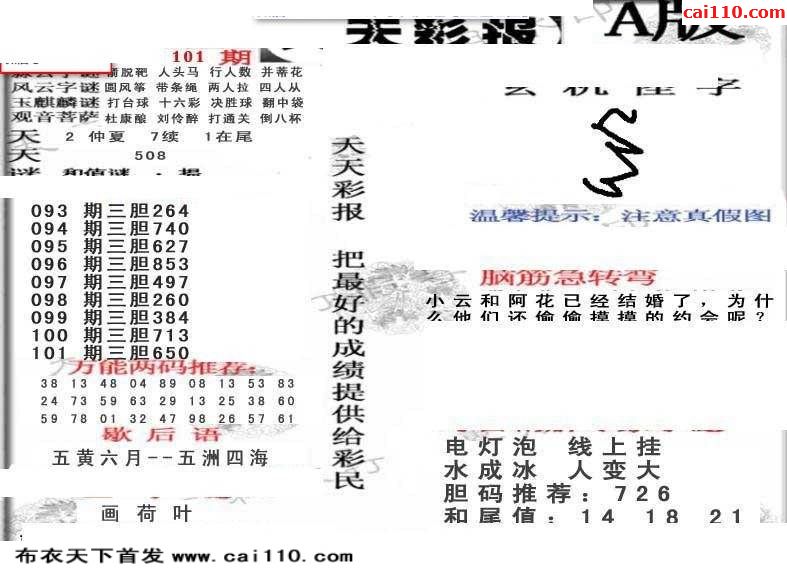 cai110.com
天彩报 A版
101 期
箭脱靶 人头马 行人数 并蒂花
风云字谜 圆风筝 带条绳 两人拉 四人从
玉麒麟谜 打台球 十六彩 决胜球 翻中袋
观音菩萨 杜康酿 刘伶醉 打通关 倒八杯
天 2 仲夏 7续 1在尾
天 508
093 期三胆264
094 期三胆740
095 期三胆627
096 期三胆853
097 期三胆497
098 期三胆260
099 期三胆384
100 期三胆713
101 期三胆650
万能两码推荐:
38 13 48 04 89 08 13 53 83
24 73 59 63 29 13 25 38 60
59 78 01 32 47 98 26 57 61
歇后语
五黄六月--五洲四海
画荷叶
天天彩报 把最好的成绩提供给彩民
温馨提示:注意真假图
脑筋急转弯
小云和阿花已经结婚了,为什
么他们还偷偷摸摸的约会呢?
电灯泡 线上挂
水成冰 人变大
胆码推荐:726
和尾值:14 18 21
布衣天下首发 www.cai110.com